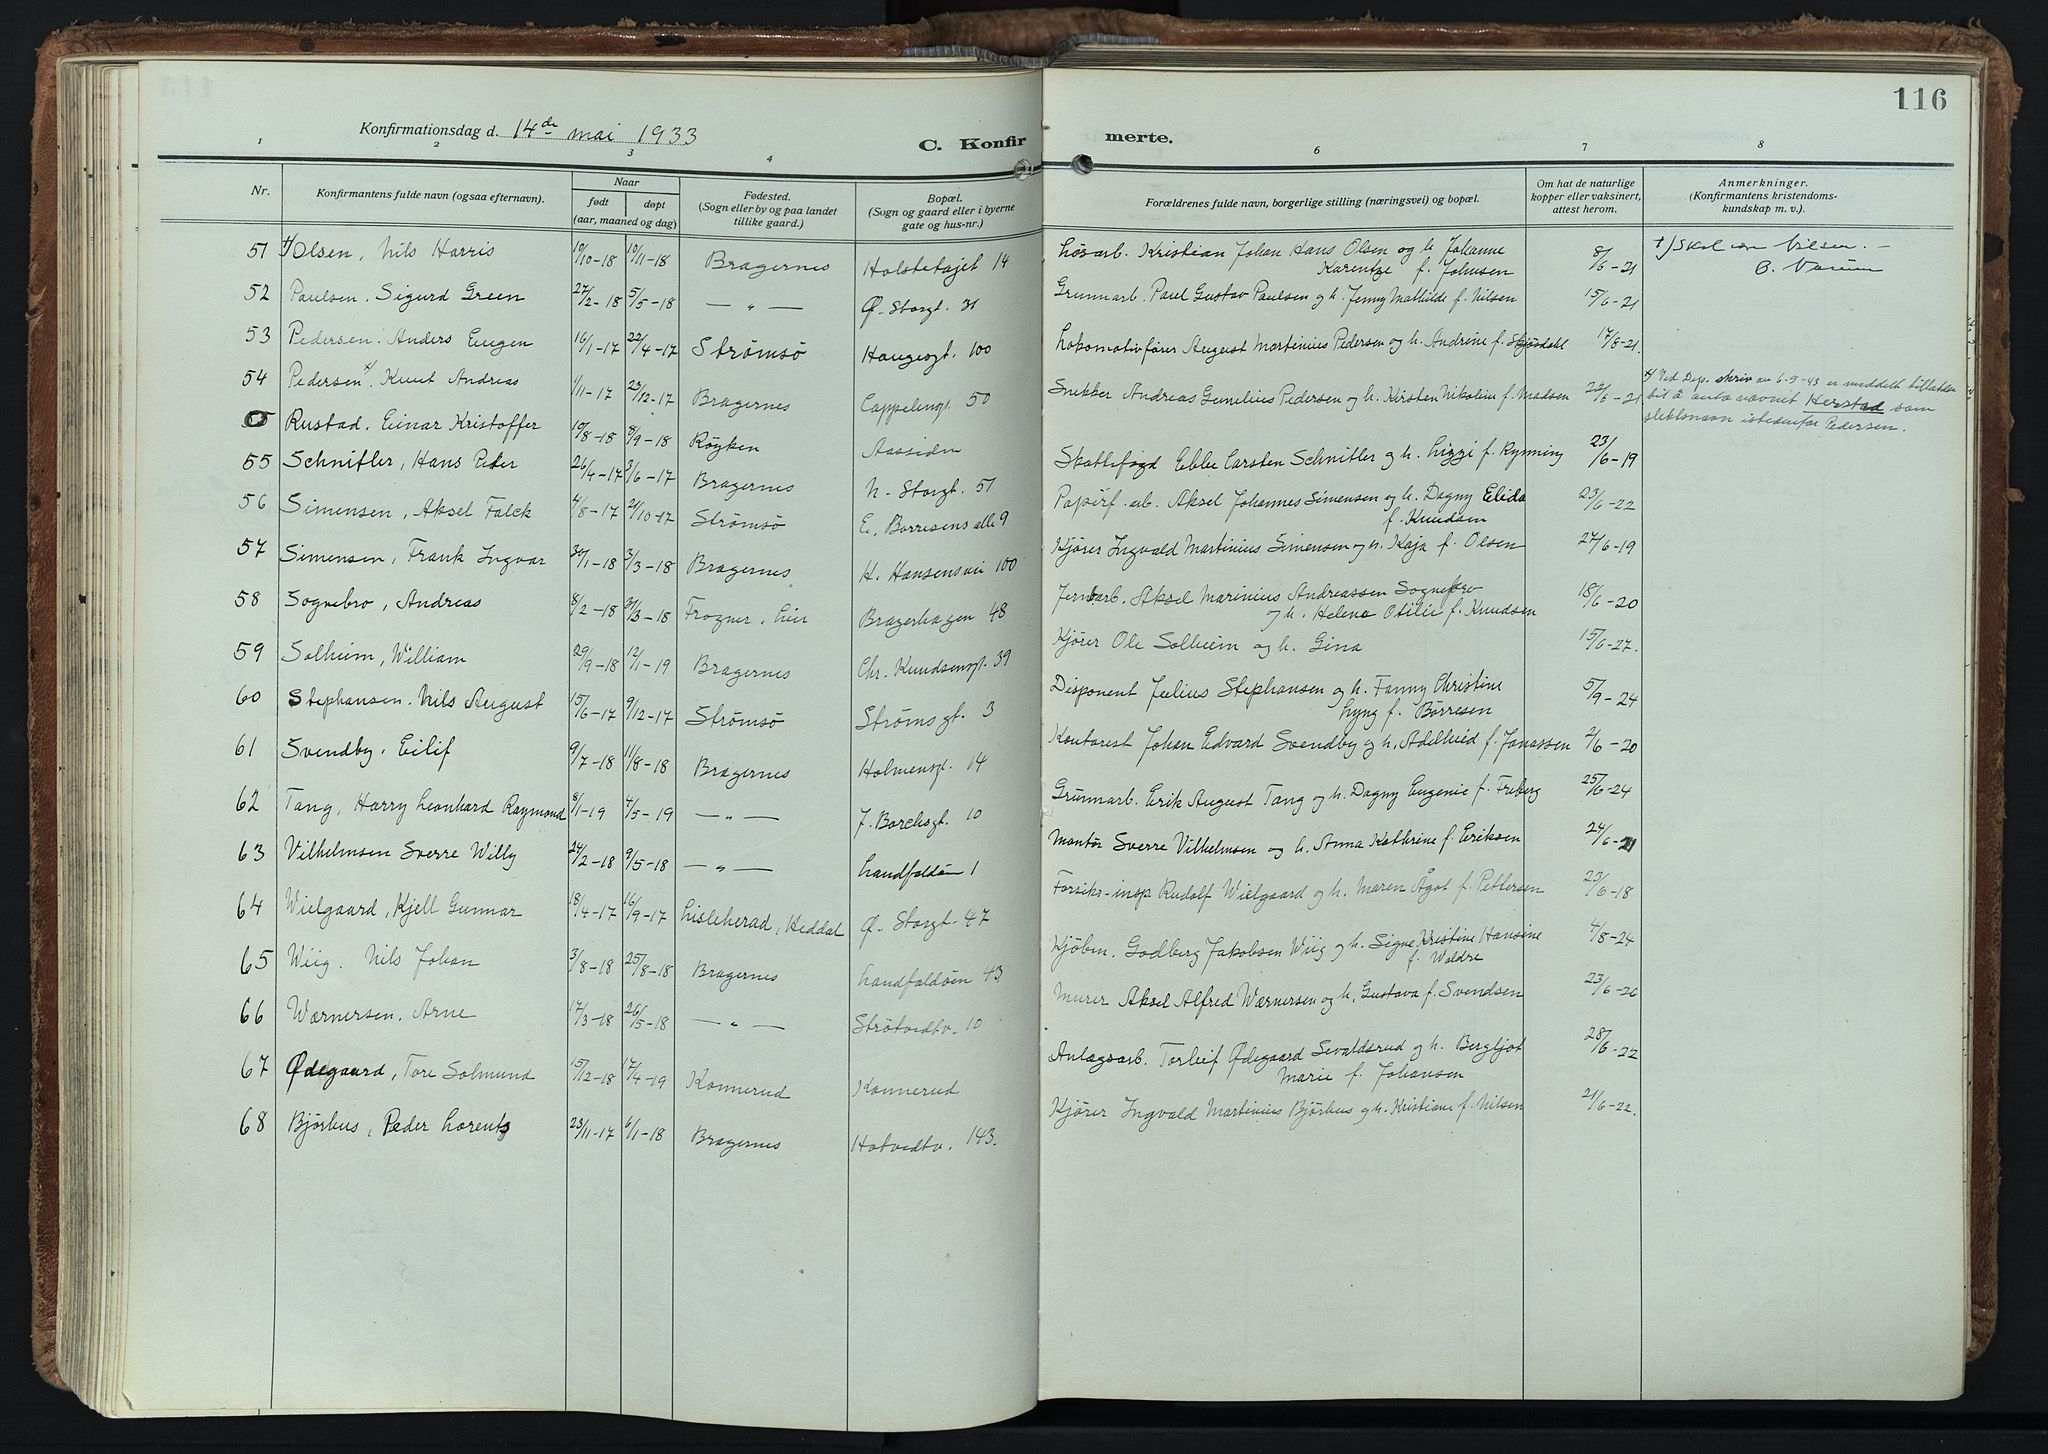 116
Konfirmationsdag d. 14de mai 1933
C. Konfir merte.
1 2 3 4 6 7 8
Nr. Konfirmantens fulde navn (ogsaa efternavn). Naar født døpt (aar, maaned og dag) Fødested. (Sogn eller by og paa landet tillike gaard.) Bopæl. (Sogn og gaard eller i byerne gate og hus-nr.) Forældrenes fulde navn, borgerlige stilling (næringsvei) og bopæl. Om hat de naturlige kopper eller vaksinert, attest herom. Anmerkninger. (Konfirmantens kristendoms-kundskap m. v.).
51 +/Olsen, Nils Harris 10/10-18 10/11-18 Bragernes Holstehajet 14 Løsarb. Kristian Johan Hans Olsen og h. Johanne Karentze f. Johnsen 8/6-21 +/ Skal være Nilsen. -
52 Paulsen, Sigurd Green 27/2-18 5/5-18 — „ — Ø. Storgt. 31 Grunnarb. Paul Gustav Paulsen og h. Jenny Mathilde f. Nilsen 15/6-21
53 Pedersen, Anders Eugen 16/1-17 22/4-17 Strømsø Haugesgt. 100 Lokomotivfører August Martinius Pedersen og h. Andrine f. Skjørdahl 17/8-21.
54 Pedersen x/, Knut Andreas 1/11-17 23/12-17 Bragernes Cappelensgt. 50 Snekker Andreas Gunelius Pedersen og h. Kirsten Nikoline f. Madsen 22/6-21 x/ Ved Dep. skriv av 6-5-43 er meddelt tillatelse til å anta navnet Herstad som slektsnavn istedenfor Pedersen.
Rustad, Einar Kristoffer 10/8-18 8/9-18 Røyken Aassiden
55 Schnitler, Hans Peter 26/4-17 3/6-17 Bragernes N. Storgt. 51 Skattefogd Ebbe Carsten Schnitler og h. Lizzi f. Rynning 23/6-19
56 Simensen, Aksel Falck 4/8-17 21/10-17 Strømsø E. Børresens alle 9 Papirf. arb. Aksel Johannes Simensen og h. Dagny Elida f. Knudsen 23/6-22
57 Simensen, Frank Ingvar 30/1-18 3/3-18 Bragernes H. Hansensvei 100 Kjører Ingvald Martinius Simensen og h. Kaja f. Olsen 27/6-19
58 Sognebro, Andreas 8/2-18 31/3-18 Frogner, Lier Bragerhagen 48 Jernarb. Aksel Marinius Andreassen Sognebro og h. Helena Otilie f. Knudsen 18/6-20
59 Solheim, William 29/9-18 12/1-19 Bragernes Chr. Knudsensgt. 39 Kjører Ole Solheim og h. Gina 15/6-27.
60 Stephansen, Nils August 15/6-17 9/12-17 Strømsø Strømsgt. 3 Disponent Julius Stephansen og h. Fanny Christine Lyng f. Børresen 5/9-24
61 Svendby, Eilif 9/7-18 11/8-18 Bragernes Holmensgt. 14 Kontorist Johan Edvard Svendby og h. Adelheid f. Jonassen 2/6-20
62 Tang, Harry Leonhard Raymond 8/1-19 4/5-19 — „ — J. Borchsgt. 10 Grunnarb. Erik August Tang og h. Dagny Eugenie f. Friberg 25/6-24
63 Vilhelmsen Sverre Willy 24/2-18 9/5-18 — „ — Landfaldøen 1 Montør Sverre Vilhelmsen og h. Anna Kathrine f. Eriksen 24/6-21
64 Wielgaard, Kjell Gunnar 18/4-17 16/9-17 Lisleherad, Heddal Ø. Storgt. 47 Forsikr-insp Rudolf Wielgaard og h. Maren Ågot f. Pettersen 23/6-18
65 Wiig, Nils Johan 3/8-18 25/8-18 Bragernes Landfaldøen 43 Kjøbm. Godberg Jakobsen Wiig og h. Signe Kristine Hansine f. Waldre 4/8-24
66 Wærnersen, Arne 17/3-18 26/5-18 — „ — Strøtvedtv. 10 Murer Aksel Alfred Wærnersen og h. Gustava f. Svendsen 23/6-26
67 Ødegaard, Tore Solmund 15/12-18 17/4-19 Konnerud Konnerud Anlægsarb. Torleif Ødegaard Sevaldsrud og h. Bergljot Marie f. Johansen 28/6-22
68 Bjørhus, Peder Lorents 23/11-17 6/1-18 Bragernes Hotvedtv. 143. Kjører Ingvald Martinius Bjørhus og h. Kristiane f. Nilsen 21/6-22.